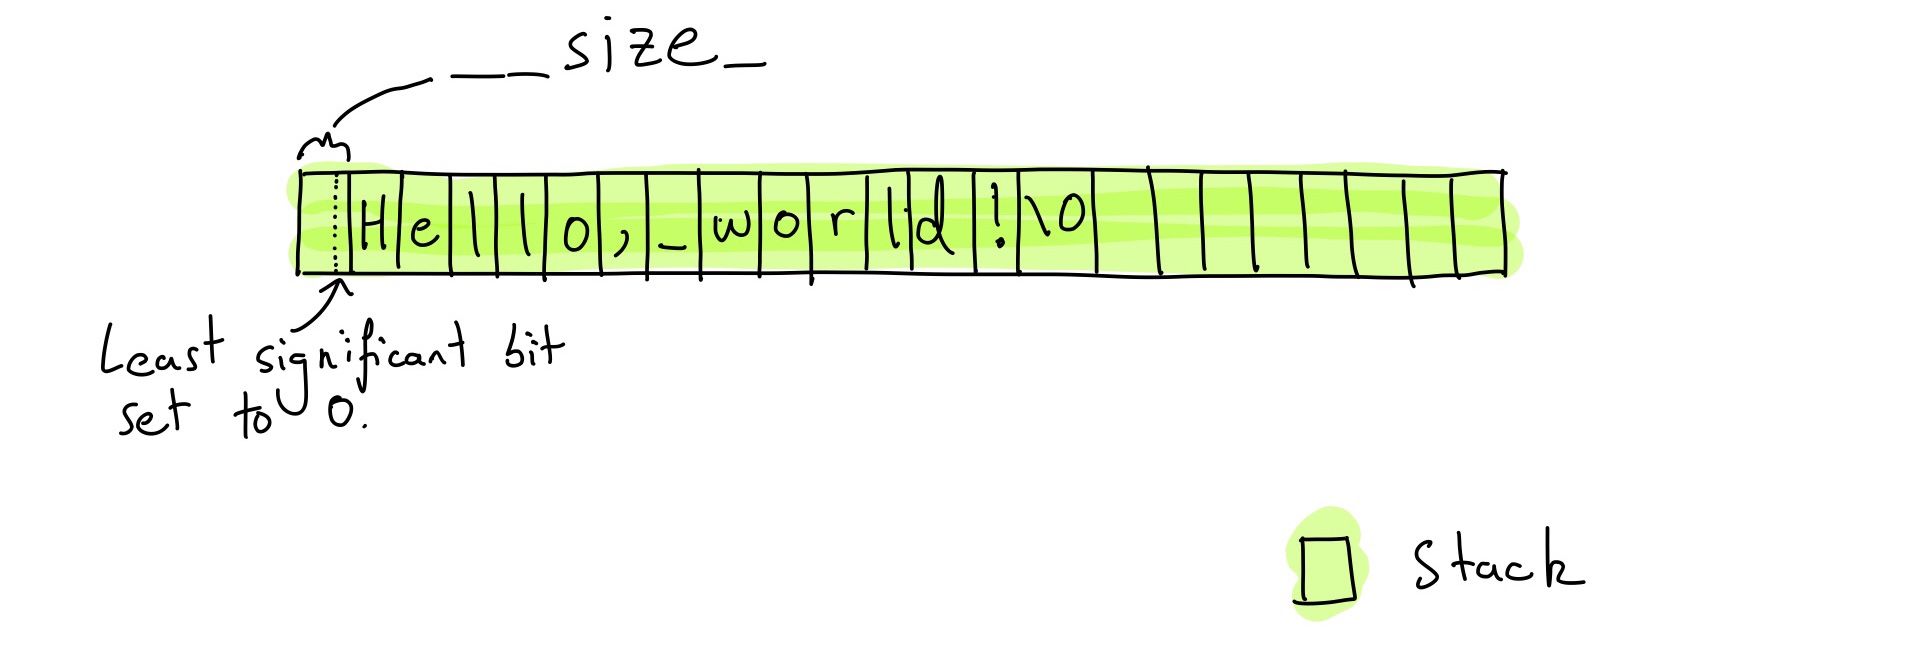 __size_
Hello,_world!\0
Least significant bit
set to 0.
stack